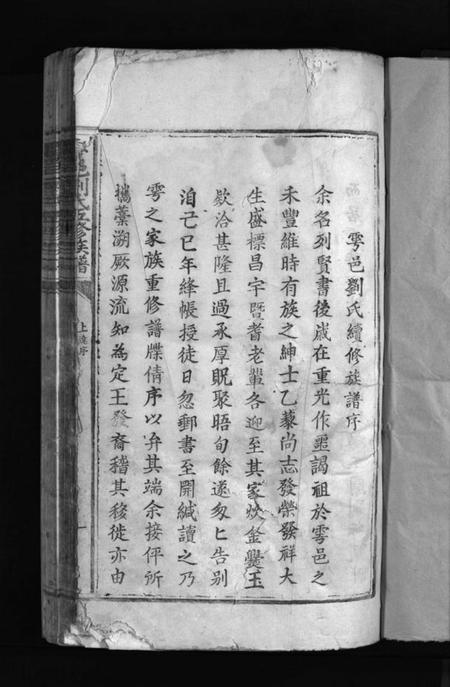 雩邑劉氏續修族譜序
余名列賢書後歲在重光作噩謁祖於雩邑之
禾豐維時有族之紳士乙藜尚志發榮發祥大
生盛標昌宇暨耆老輩各迎至其家炊金爨玉
欵洽甚隆且過承厚貺聚晤旬餘遂匆匕告别
洎己巳年絳帳授徒日忽郵書至開緘讀之乃
雩之家族重修譜牒倩序以弁其端余接伻所
攜藁溯厥源流知為定王發裔稽其移徙亦由
邑劉氏五修族譜
上 序